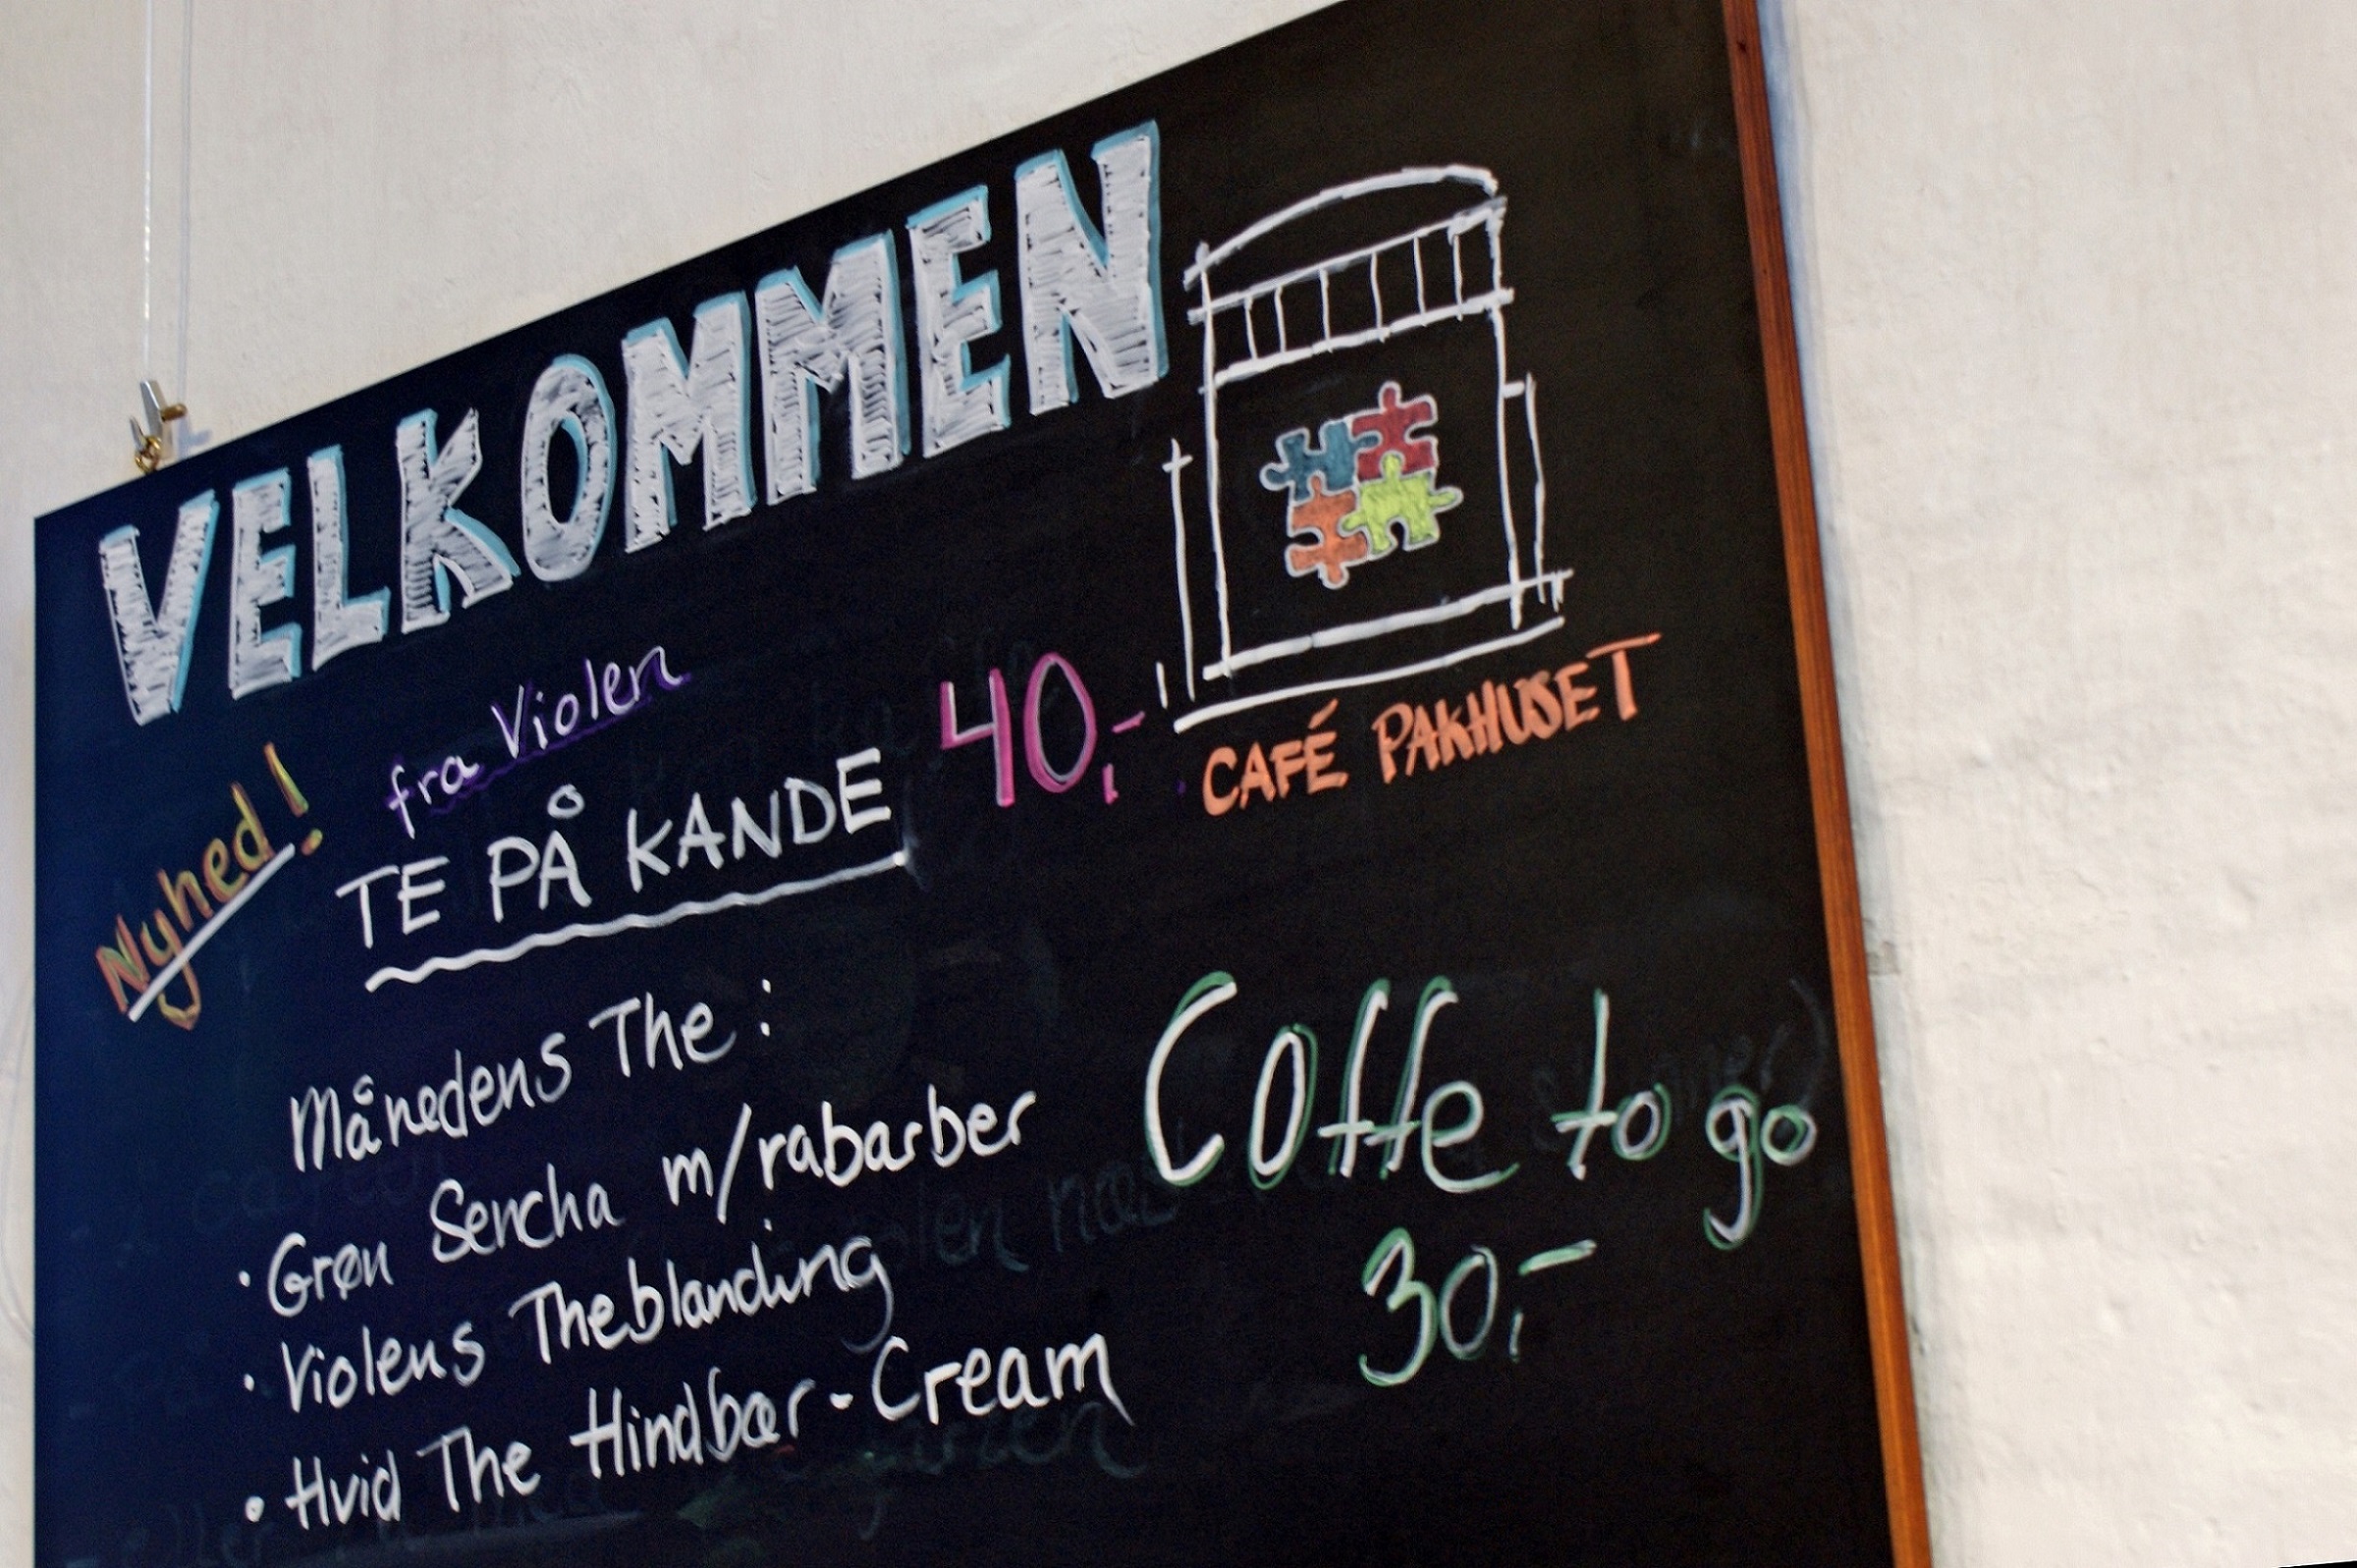 VELKOMMEN
CAFÉ PAKHUSET
Nyhed!
fra Violen
TE PÅ KANDE 40,-
Månedens The:
• Grøn Sencha m/rabarber
• Violens Theblanding
• Hvid The Hindbær-Cream
Coffe to go
30,-